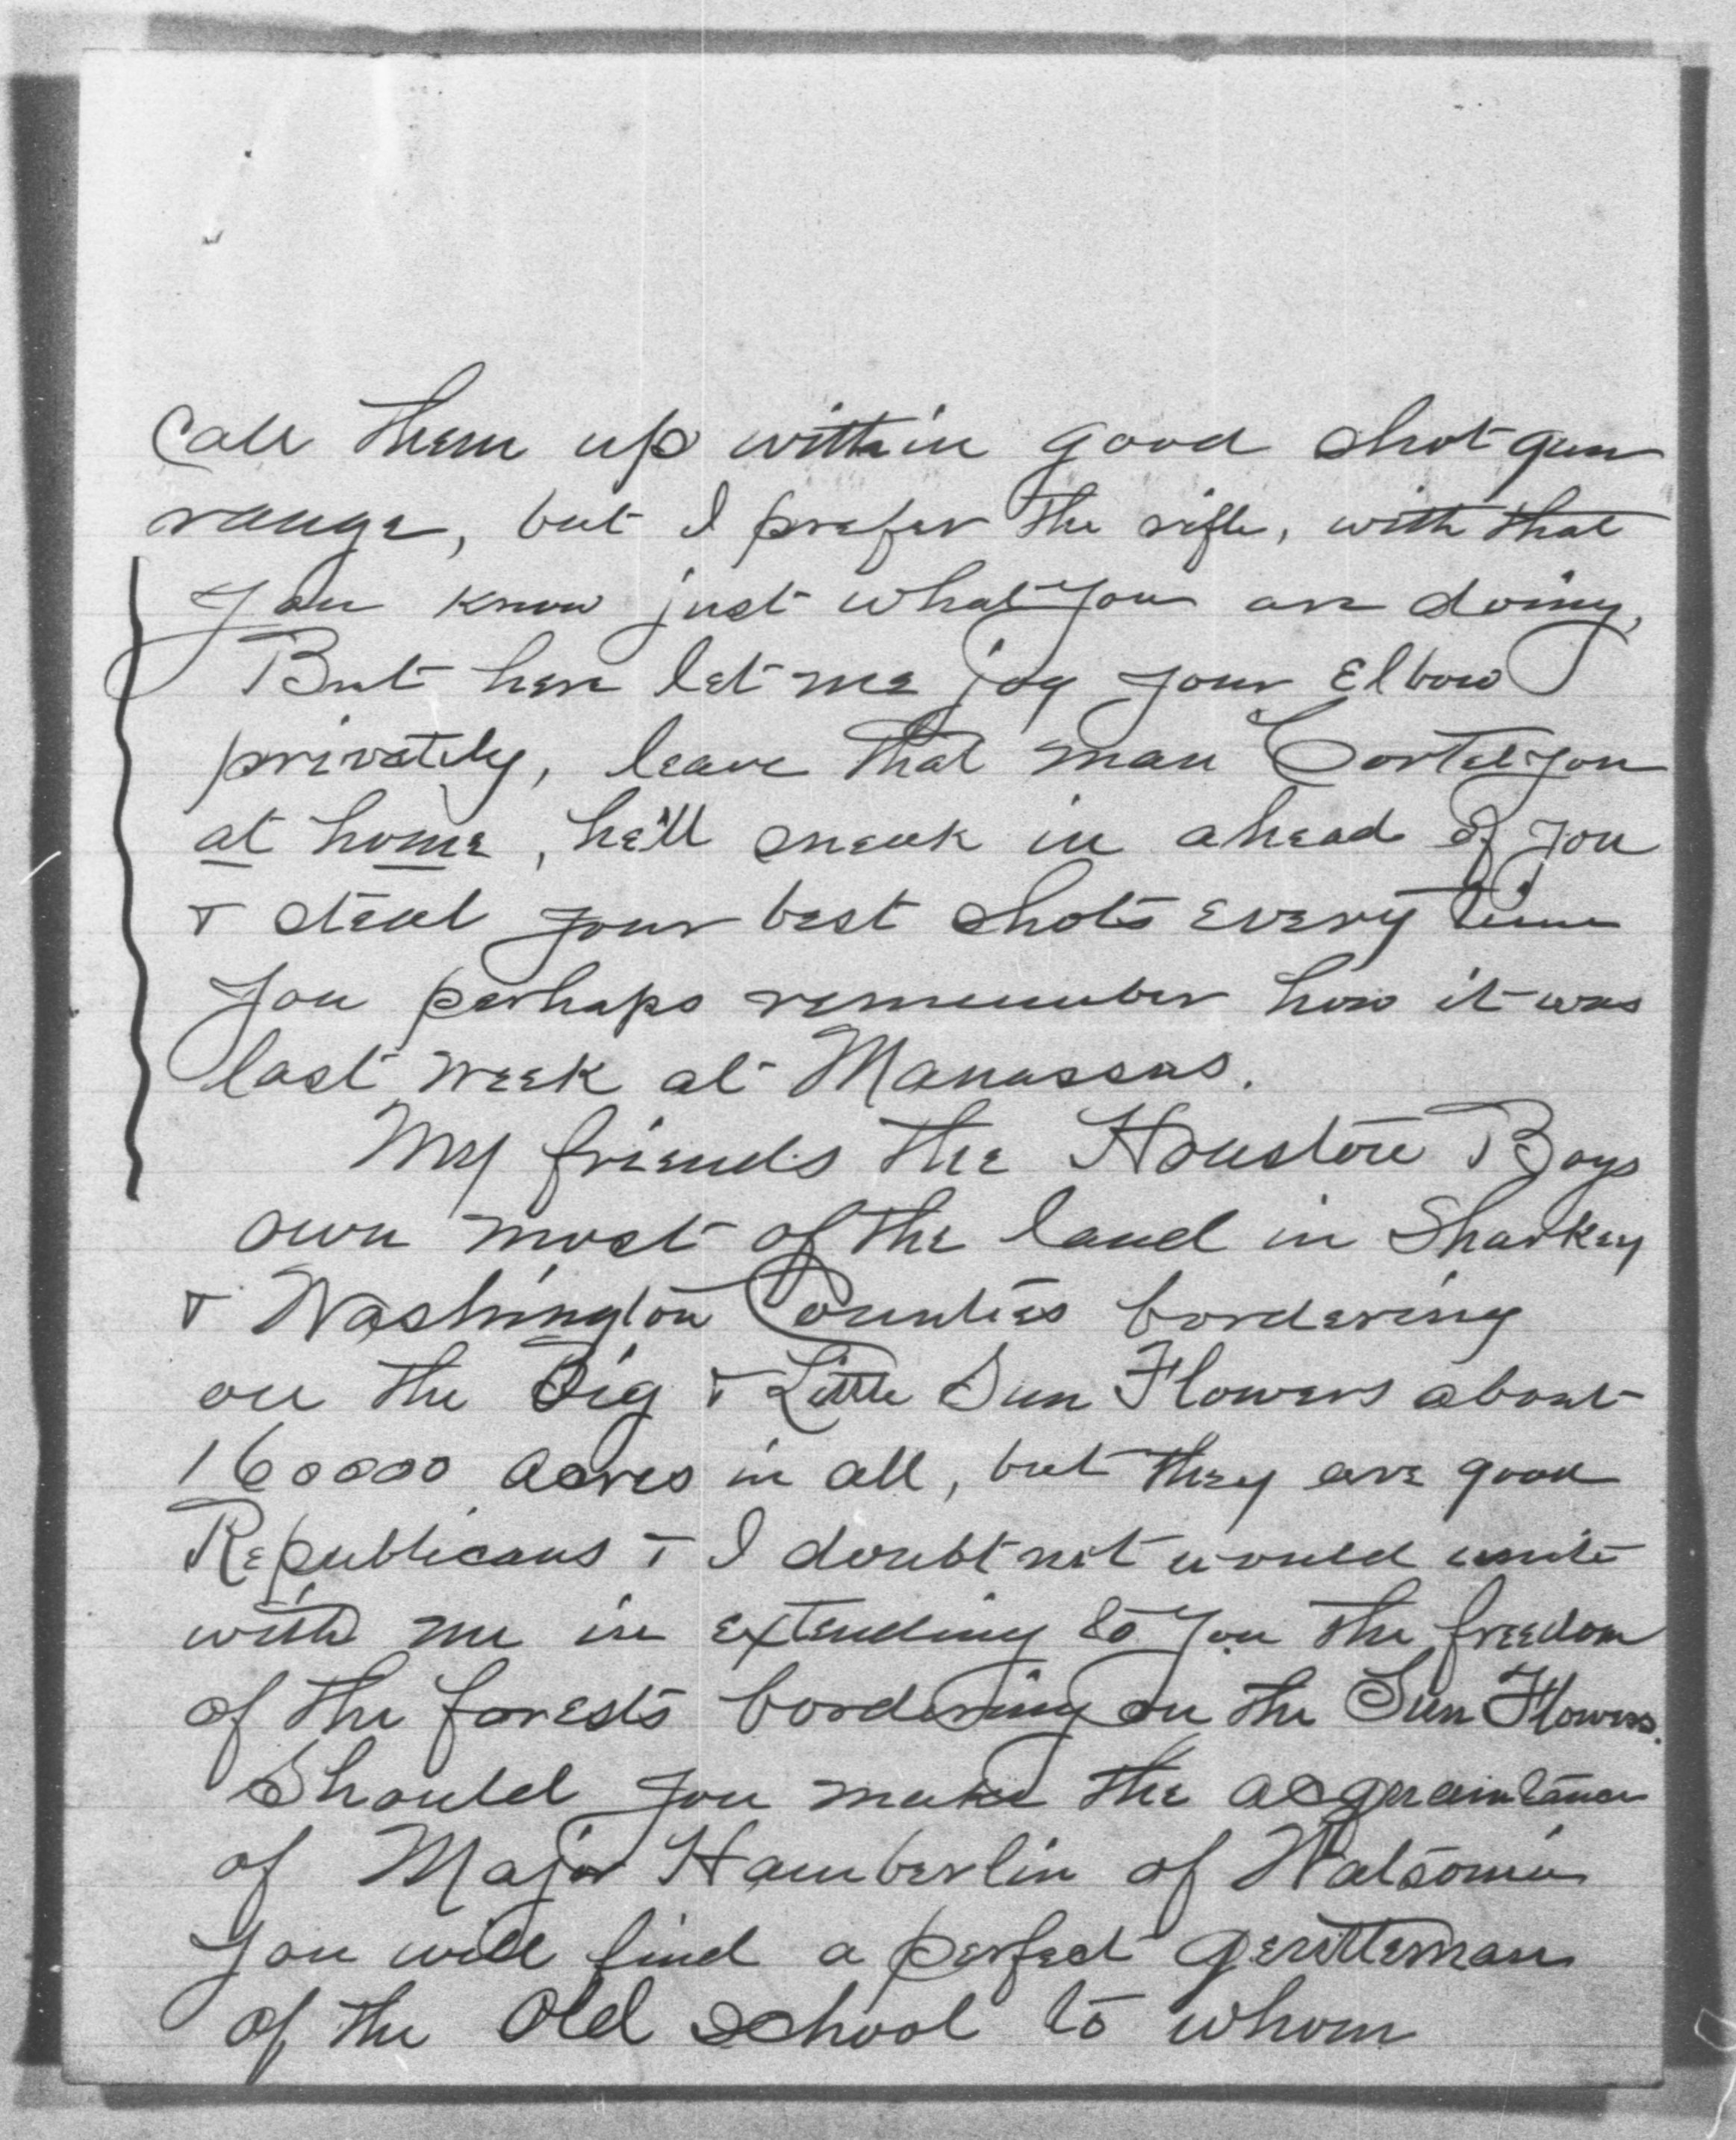 Call them up within good shot gun
range, but I prefer the rifle, with that
you know just what you are doing,
But here let me jog your Elbow
privately, leave that man Cortelyou
at home, he'll sneak in ahead of you
& steal your best shots every time
You perhaps remember how it was
last week at Manassas.
My friends the Houston Boys
own most of the land in Sharkey
& Washington Counties bordering
on the Big & Little Sun Flowers about
160000 acres in all, but they are good
Republicans & I doubt not would unite
with me in extending to you the freedom
of the forests bordering on the Sun Flowers.
Should you make the acquaintance
of Major Hamberlin of
you will find a perfect gentleman
of the Old school to whom